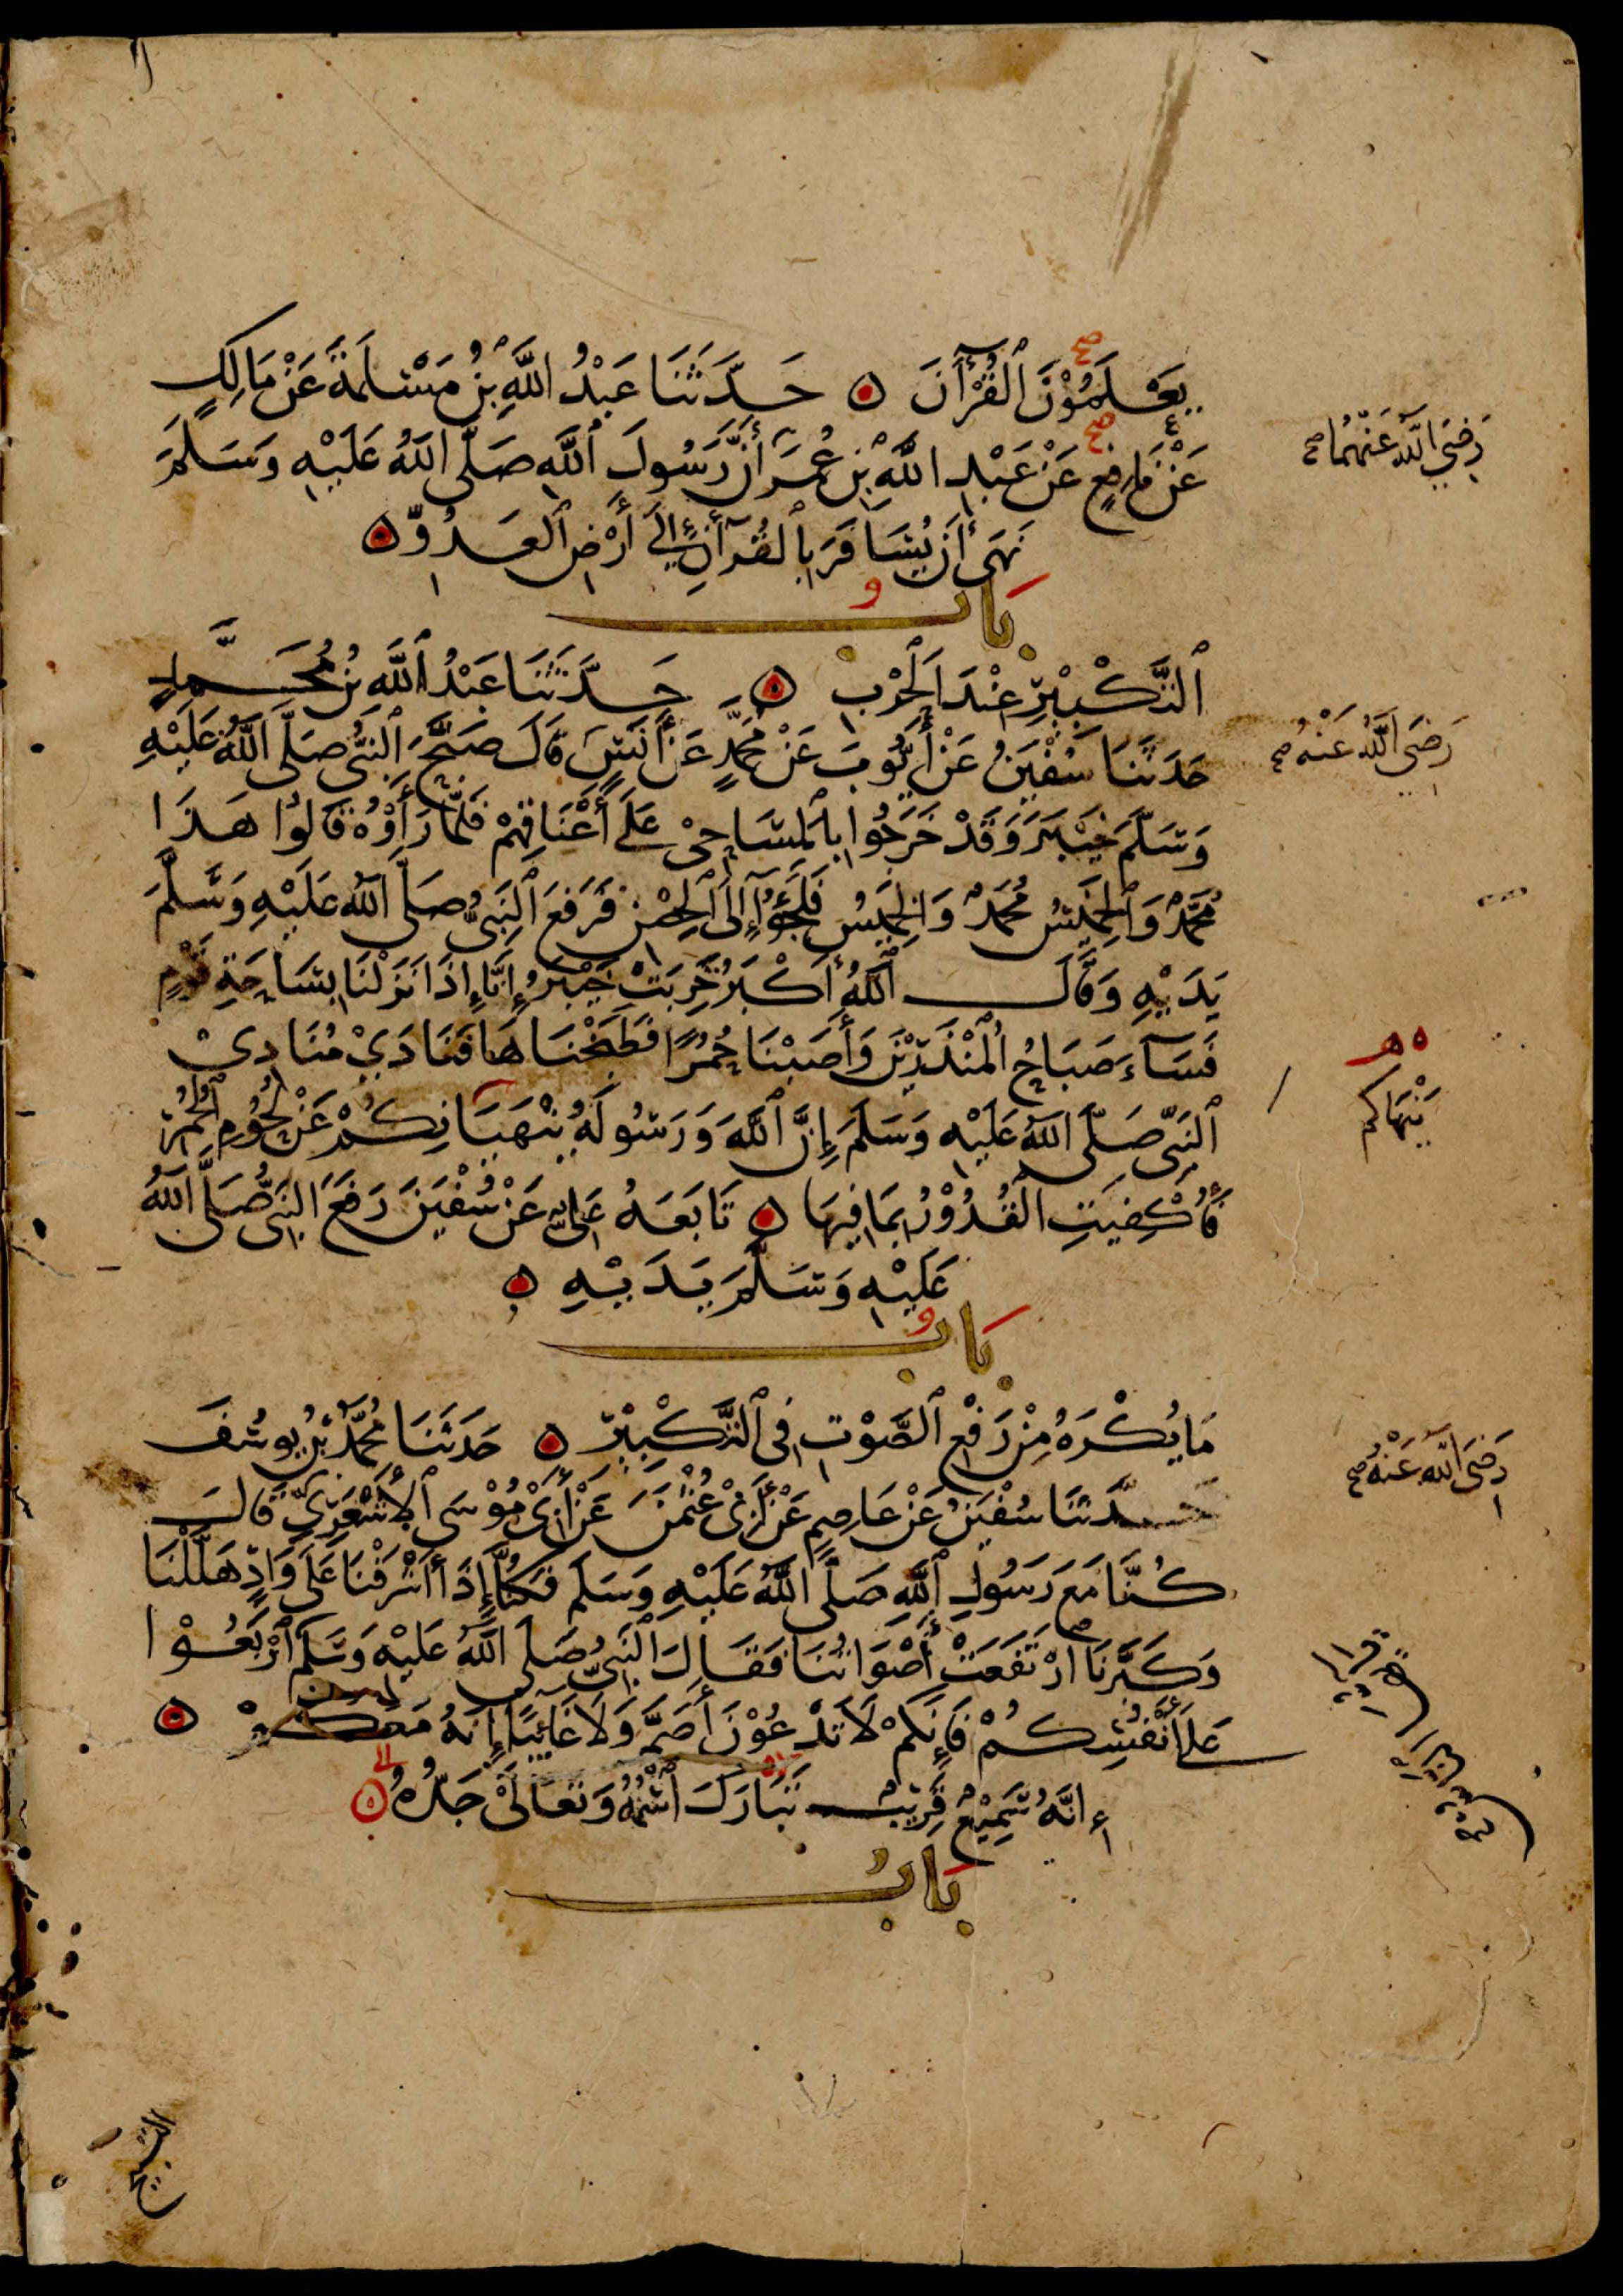 يَعْلَمُوْنَ ٱلْقُرْآنَ ۵ حَدَّثَنَا عَبْدُ اللَّهِ بْنُ مَسْلَمَةَ عَنْ مَالِكٍ
عَنْ نَافِعٍ عَنْ عَبْدِ اللَّهِ بْنِ عُمَرَ أَنَّ رَسُولَ ٱللَّهِ صَلَّى اللَّهُ عَلَيْهِ وَسَلَّمَ
رَضِيَ اللَّهُ عَنْهُمَا صح
نَهَى أَنْ يُسَافَرَ بِالْقُرْآنِ إِلَى أَرْضِ ٱلْعَدُوِّ ۵
بَابُ
ٱلتَّكْبِيْرِ عِنْدَ ٱلْحَرْبِ ۵ حَدَّثَنَا عَبْدُ ٱللَّهِ بْنُ مُحَمَّدٍ
حَدَثَنَا سُفْيَنُ عَنْ أَيُّوبَ عَنْ مُحَمَّدٍ عَنْ أَنَسٍ قَالَ صَبَّحَ ٱلنَّبِيُّ صَلَّى اللَّهُ عَلَيْهِ
رَضِيَ اللَّهُ عَنْهُ صح
وَسَلَّمَ خَيْبَرَ وَقَدْ خَرَجُوا بِٱلْمَسَاحِىْ عَلَى أَعْنَاقِهِمْ فَلَمَّا رَأَوْهُ قَالُوا هَذَا
مُحَمَّدٌ وَٱلْخَمِيْسُ مُحَمَّدٌ وَٱلْخَمِيْسُ فَلَجَؤُا إِلَى ٱلْحِصْنِ فَرَفَعَ ٱلنَّبِيُّ صَلَّى اللَّهُ عَلَيْهِ وَسَلَّمَ
يَدَيْهِ وَقَالَ ٱللَّهُ أَكْبَرُ خَرِبَتْ خَيْبَرُ إِنَّا إِذَا نَزَلْنَا بِسَاحَةِ قَوْمٍ
فَسَآءَ صَبَاحُ ٱلْمُنْذَرِيْنَ وَأَصَبْنَا حُمُرًا فَطَبَخْنَاهَا فَنَادَىْ مُنَادِىْ
ٱلنَّبِيِّ صَلَّى اللَّهُ عَلَيْهِ وَسَلَّمَ إِنَّ ٱللَّهَ وَرَسُولَهُ يَنْهَيَانِكُمْ عَنْ لُحُوْمِ ٱلْحُمُرِ
ه‍
يَنْهَاكُمْ
فَأُكْفِيَتِ ٱلْقُدُوْرُ بِمَا فِيهَا ۵ تَابَعَهُ عَلِيٌّ عَنْ سُفْيَنَ رَفَعَ ٱلنَّبِيُّ صَلَّى اللَّهُ
عَلَيْهِ وَسَلَّمَ يَدَيْهِ ۵
بَابُ
مَا يُكْرَهُ مِنْ رَفْعِ ٱلصَّوْتِ فِى ٱلتَّكْبِيْرِ ۵ حَدَثَنَا مُحَمَّدُ بْنُ يُوسُفَ
حَدَّثَنَا سُفْيَنُ عَنْ عَاصِمٍ عَنْ أَبِىْ عُثْمَنَ عَنْ أَبِىْ مُوْسَى ٱلْأَشْعَرِيِّ قَالَ
رَضِيَ اللَّهُ عَنْهُ صح
كُنَّا مَعَ رَسُولِ ٱللَّهِ صَلَّى اللَّهُ عَلَيْهِ وَسَلَّمَ فَكُنَّا إِذَا أَشْرَفْنَا عَلَى وَادٍ هَلَّلْنَا
وَكَبَّرْنَا ارْتَفَعَتْ أَصْوَاتُنَا فَقَالَ ٱلنَّبِيُّ صَلَّى اللَّهُ عَلَيْهِ وَسَلَّمَ ٱرْبَعُوْا
عَلَى أَنْفُسِكُمْ فَإِنَّكُمْ لَا تَدْعُوْنَ أَصَمَّ وَلَا غَائِبًا إِنَّهُ مَعَكُمْ ۵
إِنَّهُ سَمِيْعٌ قَرِيْبٌ تَبَارَكَ ٱسْمُهُ وَتَعَالَىْ جَدُّهُ ۵
بَابُ